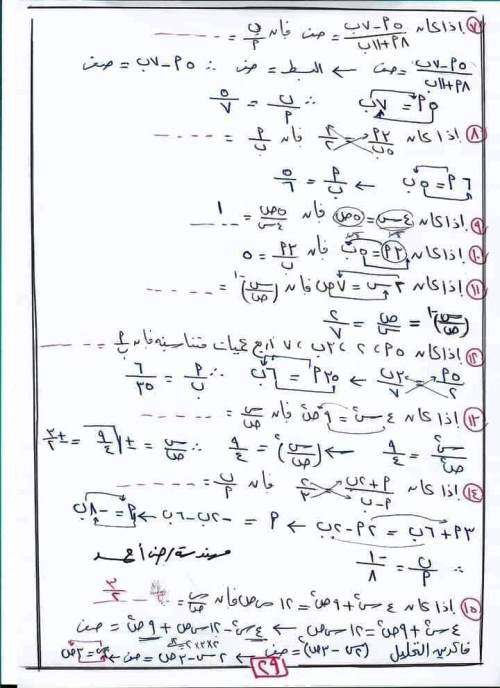 ٧) إذا كان (٥أ - ٧ب)/(٨أ + ١١ب) = صفر فإن ب/أ = ----
(٥أ - ٧ب)/(٨أ + ١١ب) = صفر ← البسط = صفر ∴ ٥أ - ٧ب = صفر
٥أ = ٧ب ∴ ب/أ = ٥/٧
٨) إذا كان ٢أ/٥ب = ٢/٢ فإن أ/ب = ----
٦أ = ٥ب ← أ/ب = ٥/٦
٩) إذا كان ٤س = ٥ص فإن ٥ص/٤س = ١
١٠) إذا كان ٢أ = ٥ب فإن ٢أ/ب = ٥
١١) إذا كان ٢س = ٧ص فإن (س/ص)^-١ = ----
(س/ص)^-١ = ص/س = ٢/٧
١٢) إذا كان ٥أ ، ٢ ، ٢ب ، ٧ أربع كميات متناسبة فإن أ/ب = ----
٥أ/٢ = ٢ب/٧ ← ٣٥أ = ٦ب ∴ أ/ب = ٦/٣٥
١٣) إذا كان ٤س² = ٩ص² فإن س/ص = ----
س²/ص² = ٩/٤ ← (س/ص)² = ٩/٤ ∴ س/ص = ±√٩/٤ = ±٣/٢
١٤) إذا كان (أ + ٢ب)/(أ - ب) = ٢/٣ فإن ب/أ = ----
٣أ + ٦ب = ٢أ - ٢ب ← أ = -٢ب - ٦ب ← أ = -٨ب
∴ ب/أ = -١/٨ مهندسة/ رضا أحمد
١٥) إذا كان ٤س² + ٩ص² = ١٢س ص فإن س/ص = ٣/٢
٤س² + ٩ص² = ١٢س ص ← ٤س² - ١٢س ص + ٩ص² = صفر
فاكرين التحليل (٢س - ٣ص)² = صفر ← ٢س - ٣ص = صفر ← ٢س = ٣ص
٢٩